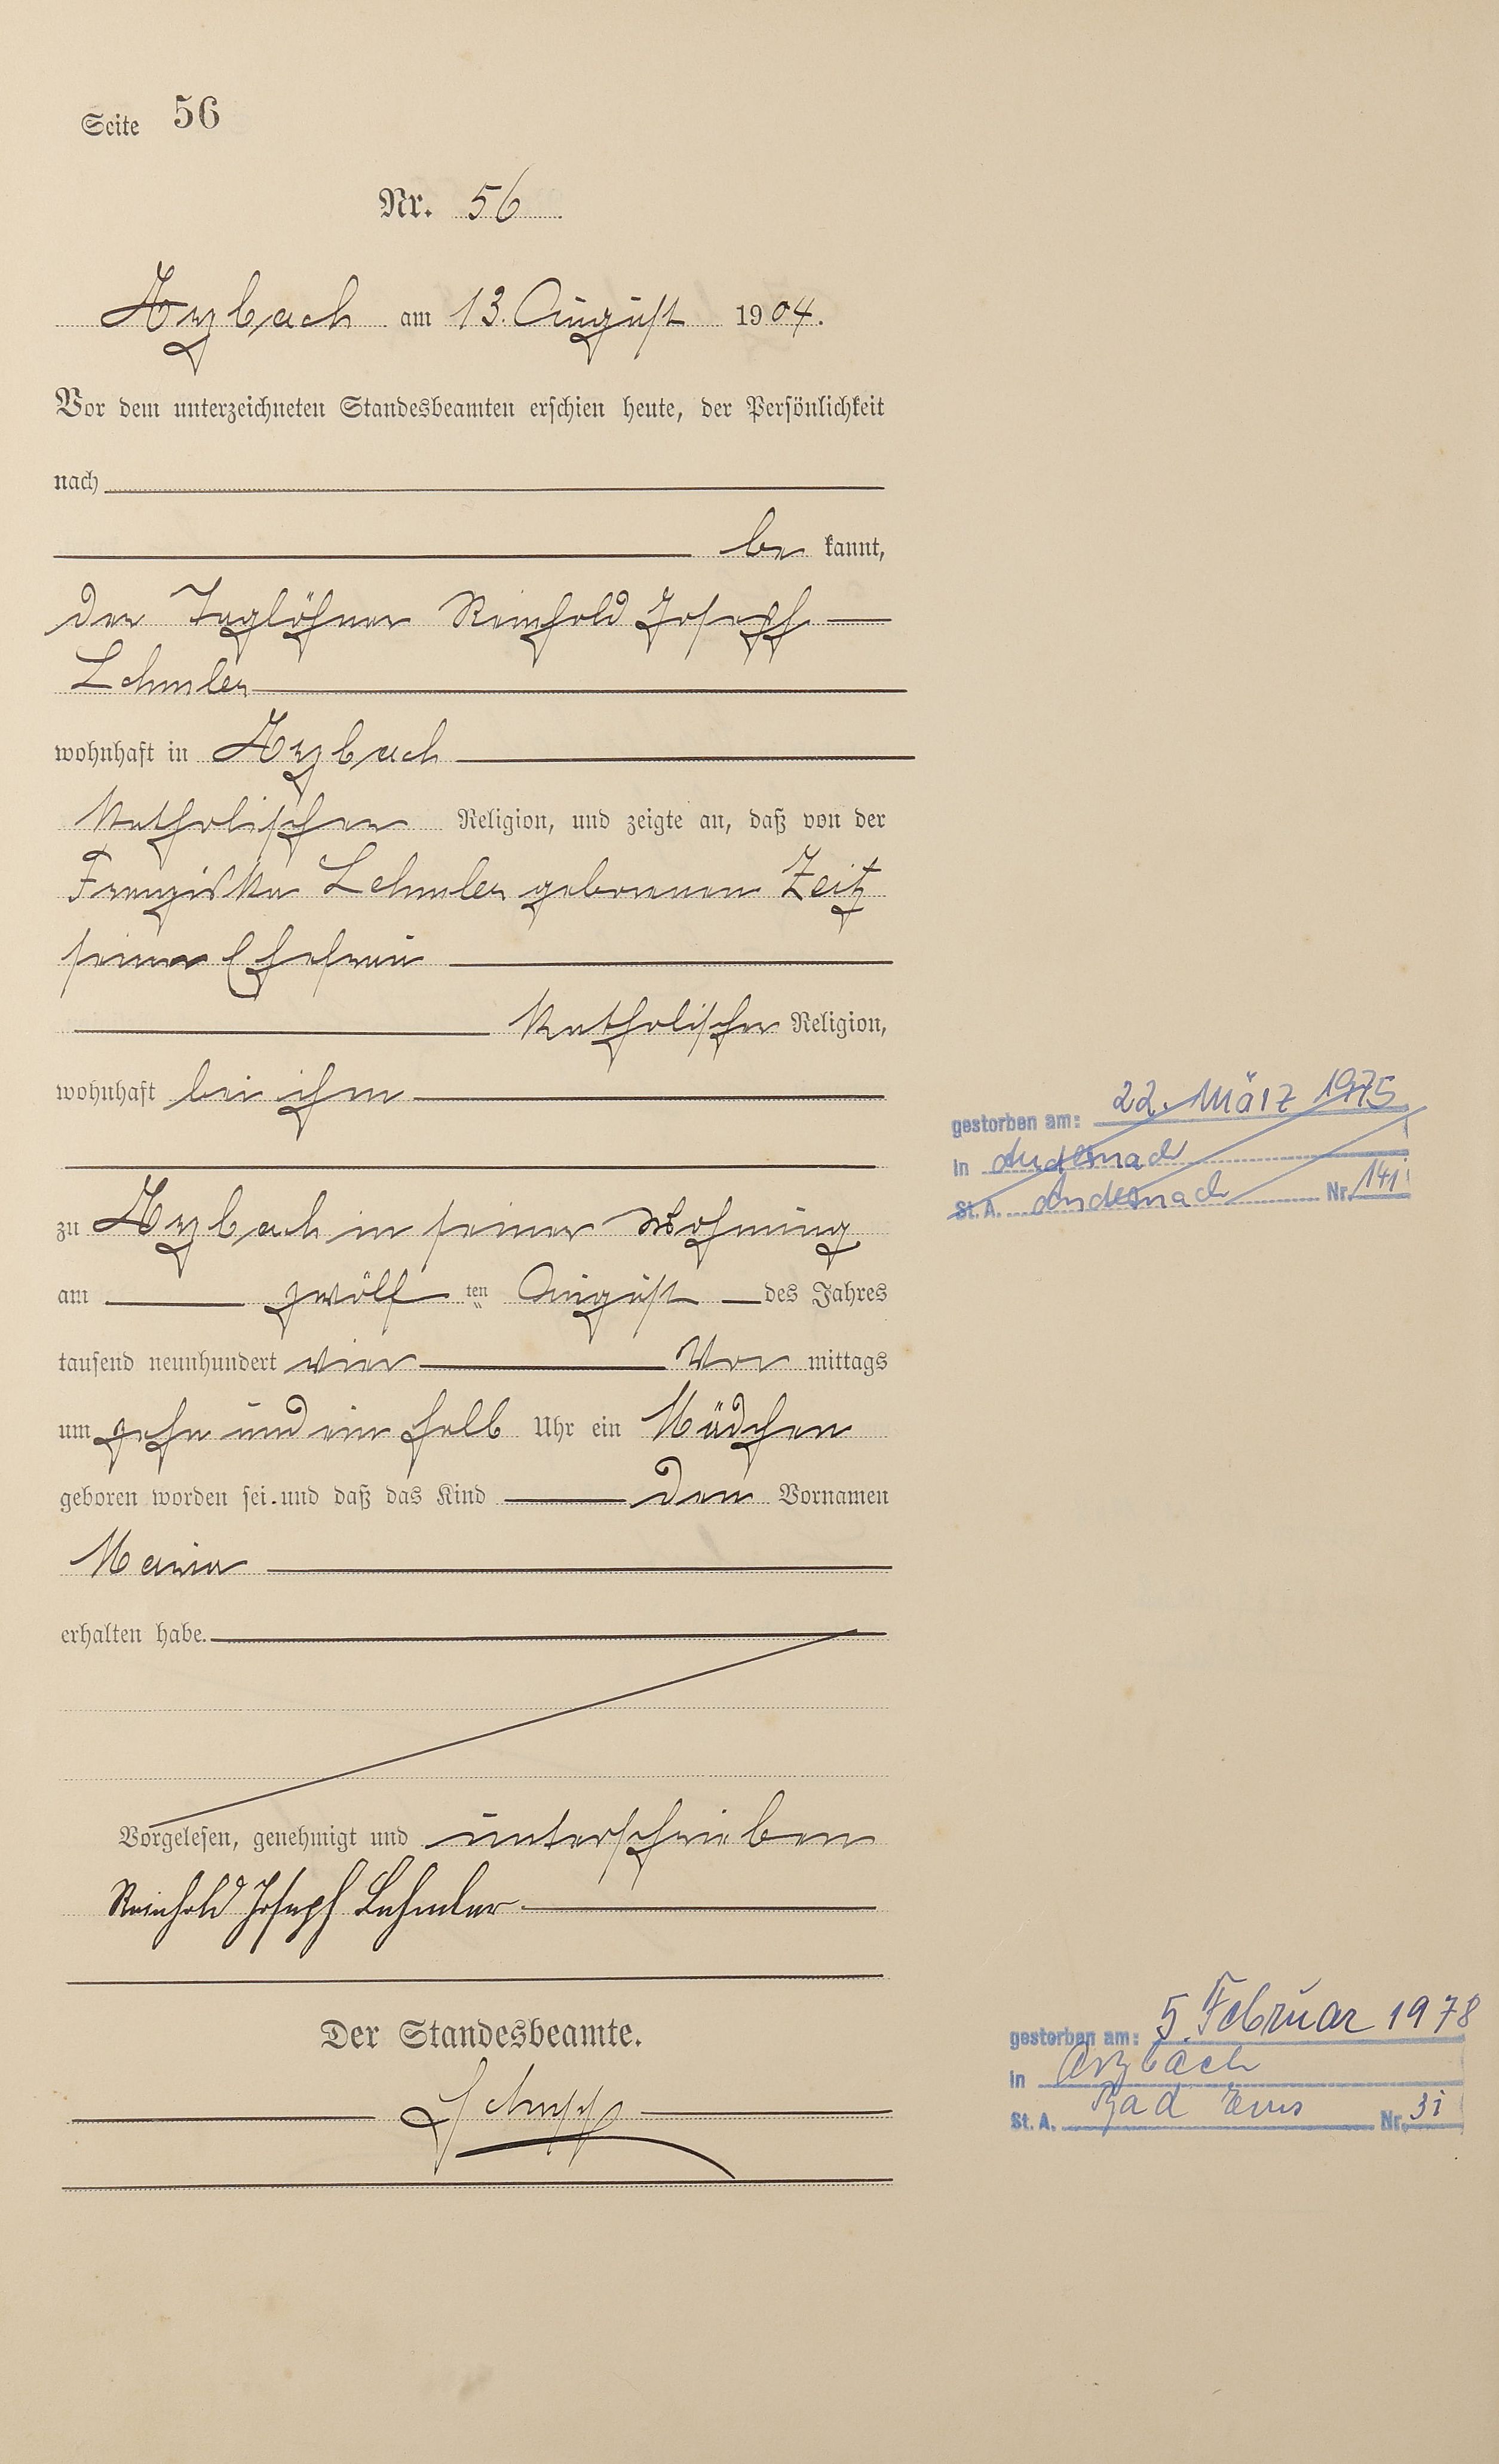 Seite 56
Nr. 56
Arzbach am 13. August 1904.
Vor dem unterzeichneten Standesbeamten erschien heute, der Persönlichkeit
nach
be kannt,
der Taglöhner Reinhold Joseph
Lehmler
wohnhaft in Arzbach
katholischer Religion, und zeigte an, daß von der
Franziska Lehmler geborenen Zeitz
seiner Ehefrau
katholischer Religion,
wohnhaft bei ihm
zu Arzbach in seiner Wohnung
am zwölf ten August des Jahres
tausend neunhundert vier Vor mittags
um zehn und ein halb Uhr ein Mädchen
geboren worden sei und daß das Kind den Vornamen
Maria
erhalten habe.
Vorgelesen, genehmigt und unterschrieben
Reinhold Joseph Lehmler
Der Standesbeamte.
Schupp
gestorben am: 22. März 1975
in Andernach
St. A. Andernach Nr. 141
gestorben am: 5. Februar 1978
in Arzbach
St. A. Bad Ems Nr. 31